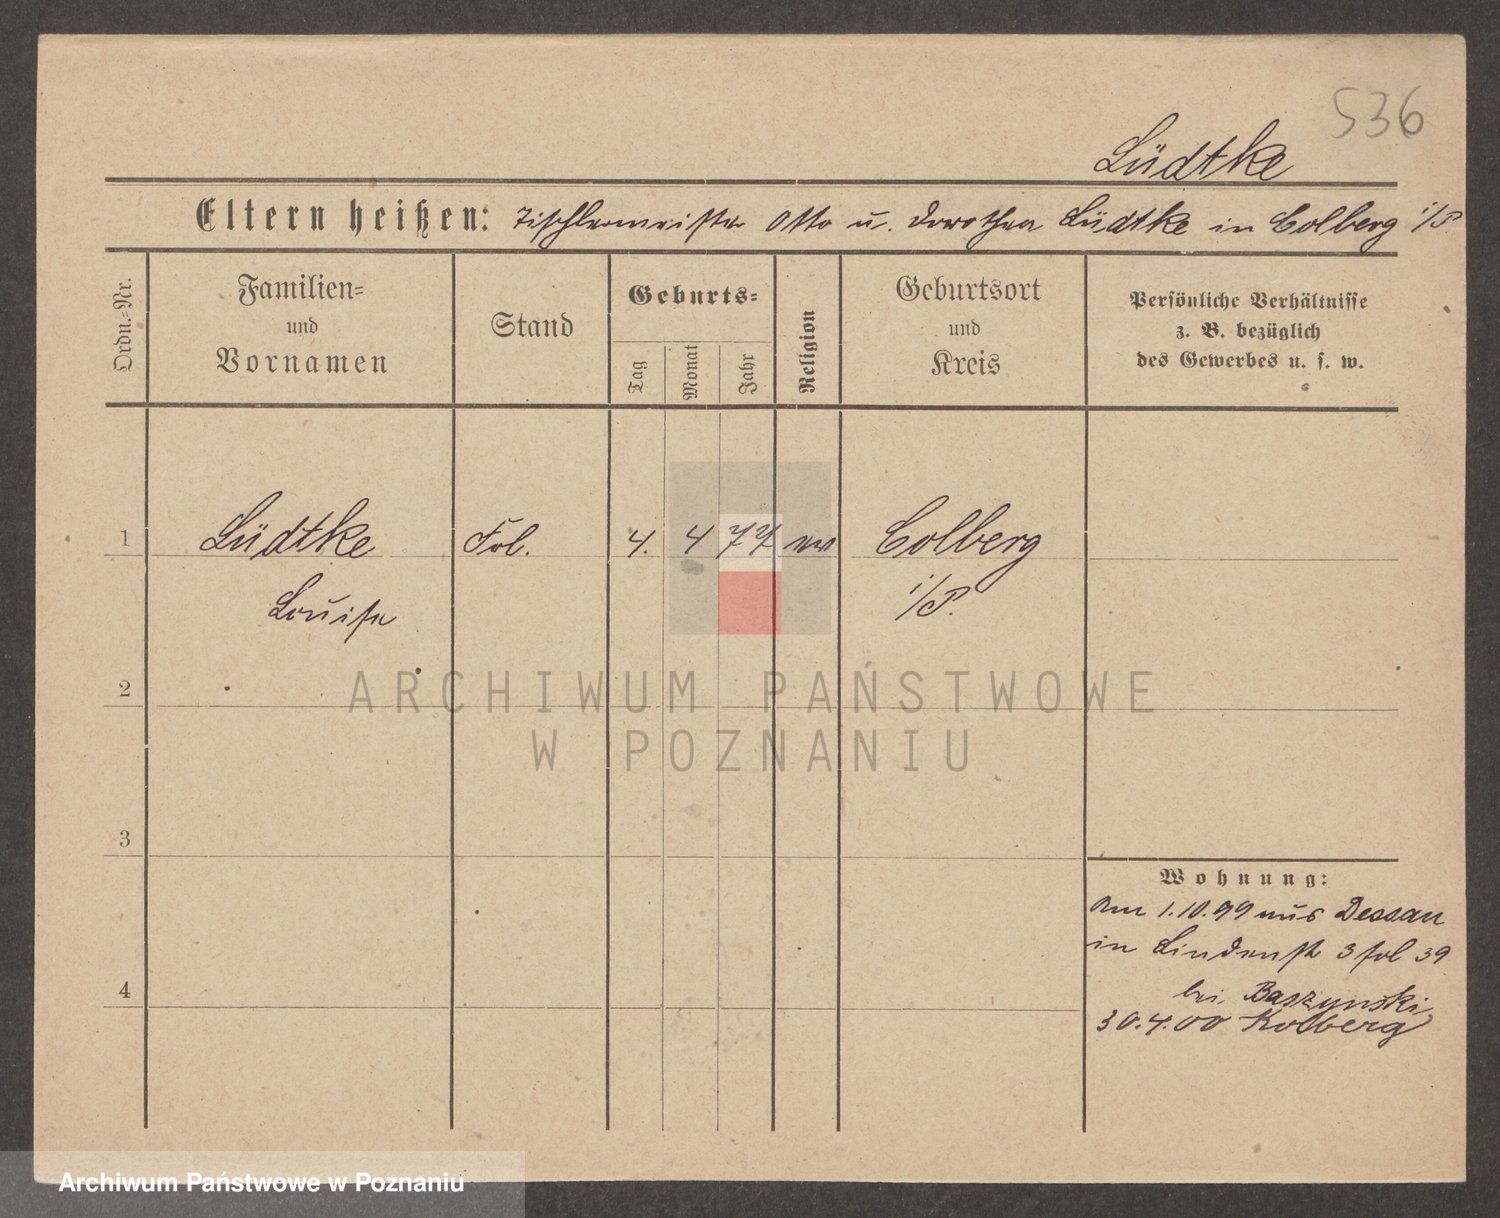 536
Lüdtke
Eltern heißen: Tischlermeister Otto u. Dorothea Lüdtke in Colberg i/P.
Ordn.-Nr.
Familien-
und
Vornamen
Stand
Geburts-
Tag
Monat
Jahr
Religion
Geburtsort
und
Kreis
Persönliche Verhältnisse
z. B. bezüglich
des Gewerbes u. s. w.
1 Lüdtke Frl. 4. 4 77 ev Colberg
Louise i/P.
2
3
4
Wohnung:
Am 1.10.99 aus Dessau
in Lindenstr 3 fol 39
bei Baszynski
30.4.00 Kolberg
ARCHIWUM PAŃSTWOWE
W POZNANIU
Archiwum Państwowe w Poznaniu